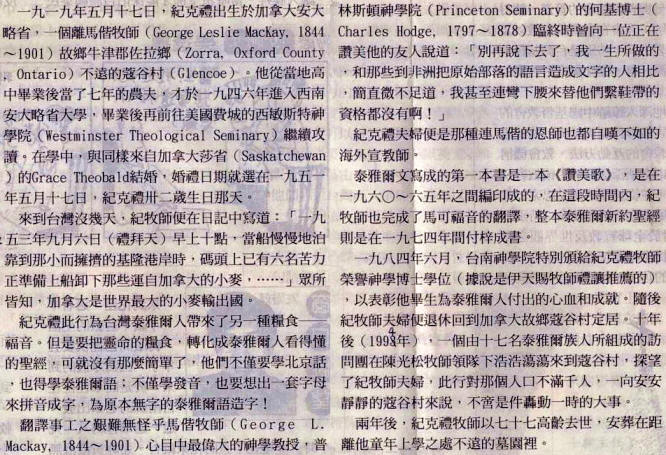 一九一九年五月十七日，紀克禮出生於加拿大安大
略省，一個離馬偕牧師（George Leslie MacKay, 1844
～1901）故鄉牛津郡佐拉鄉（Zorra, Oxford County
, Ontario）不遠的蔻谷村（Glencoe）。他從當地高
中畢業後當了七年的農夫，才於一九四六年進入西南
安大略省大學，畢業後再前往美國費城的西敏斯特神
學院（Westminster Theological Seminary）繼續攻
讀。在學中，與同樣來自加拿大莎省（Saskatchewan
）的Grace Theobald結婚，婚禮日期就選在一九五一
年五月十七日，紀克禮卅二歲生日那天。
來到台灣沒幾天，紀牧師便在日記中寫道：「一九
五三年九月六日（禮拜天）早上十點，當船慢慢地泊
靠到那小而擁擠的基隆港岸時，碼頭上已有六名苦力
正準備上船卸下那些運自加拿大的小麥，……」眾所
皆知，加拿大是世界最大的小麥輸出國。
紀克禮此行為台灣泰雅爾人帶來了另一種糧食——
福音。但是要把靈命的糧食，轉化成泰雅爾人看得懂
的聖經，可就沒有那麼簡單了，他們不僅要學北京話
，也得學泰雅爾語；不僅學發音，也要想出一套字母
來拼音成字，為原本無字的泰雅爾語造字！
翻譯事工之艱難無怪乎馬偕牧師（George L.
Mackay, 1844～1901）心目中最偉大的神學教授，普
林斯頓神學院（Princeton Seminary）的何基博士（
Charles Hodge, 1797～1878）臨終時曾向一位正在
讚美他的友人說道：「別再說下去了，我一生所做的
，和那些到非洲把原始部落的語言造成文字的人相比
，簡直微不足道，我甚至連彎下腰來替他們繫鞋帶的
資格都沒有啊！」
紀克禮夫婦便是那種連馬偕的恩師也都自嘆不如的
海外宣教師。
泰雅爾文寫成的第一本書是一本《讚美歌》，是在
一九六〇～六五年之間編印成的，在這段時間內，紀
牧師也完成了馬可福音的翻譯，整本泰雅爾新約聖經
則是在一九七四年間付梓成書。
一九八四年六月，台南神學院特別頒給紀克禮牧師
榮譽神學博士學位（據說是伊天賜牧師禮讓推薦的）
，以表彰他畢生為泰雅爾人付出的心血和成就。隨後
紀牧師夫婦便退休回到加拿大故鄉蔻谷村定居。十年
後（1994年），一個由十七名泰雅爾族人所組成的訪
問團在陳光松牧師領隊下浩浩蕩蕩來到蔻谷村，探望
了紀牧師夫婦，此行對那個人口不滿千人，一向安安
靜靜的蔻谷村來說，不啻是件轟動一時的大事。
兩年後，紀克禮牧師以七十七高齡去世，安葬在距
離他童年上學之處不遠的墓園裡。